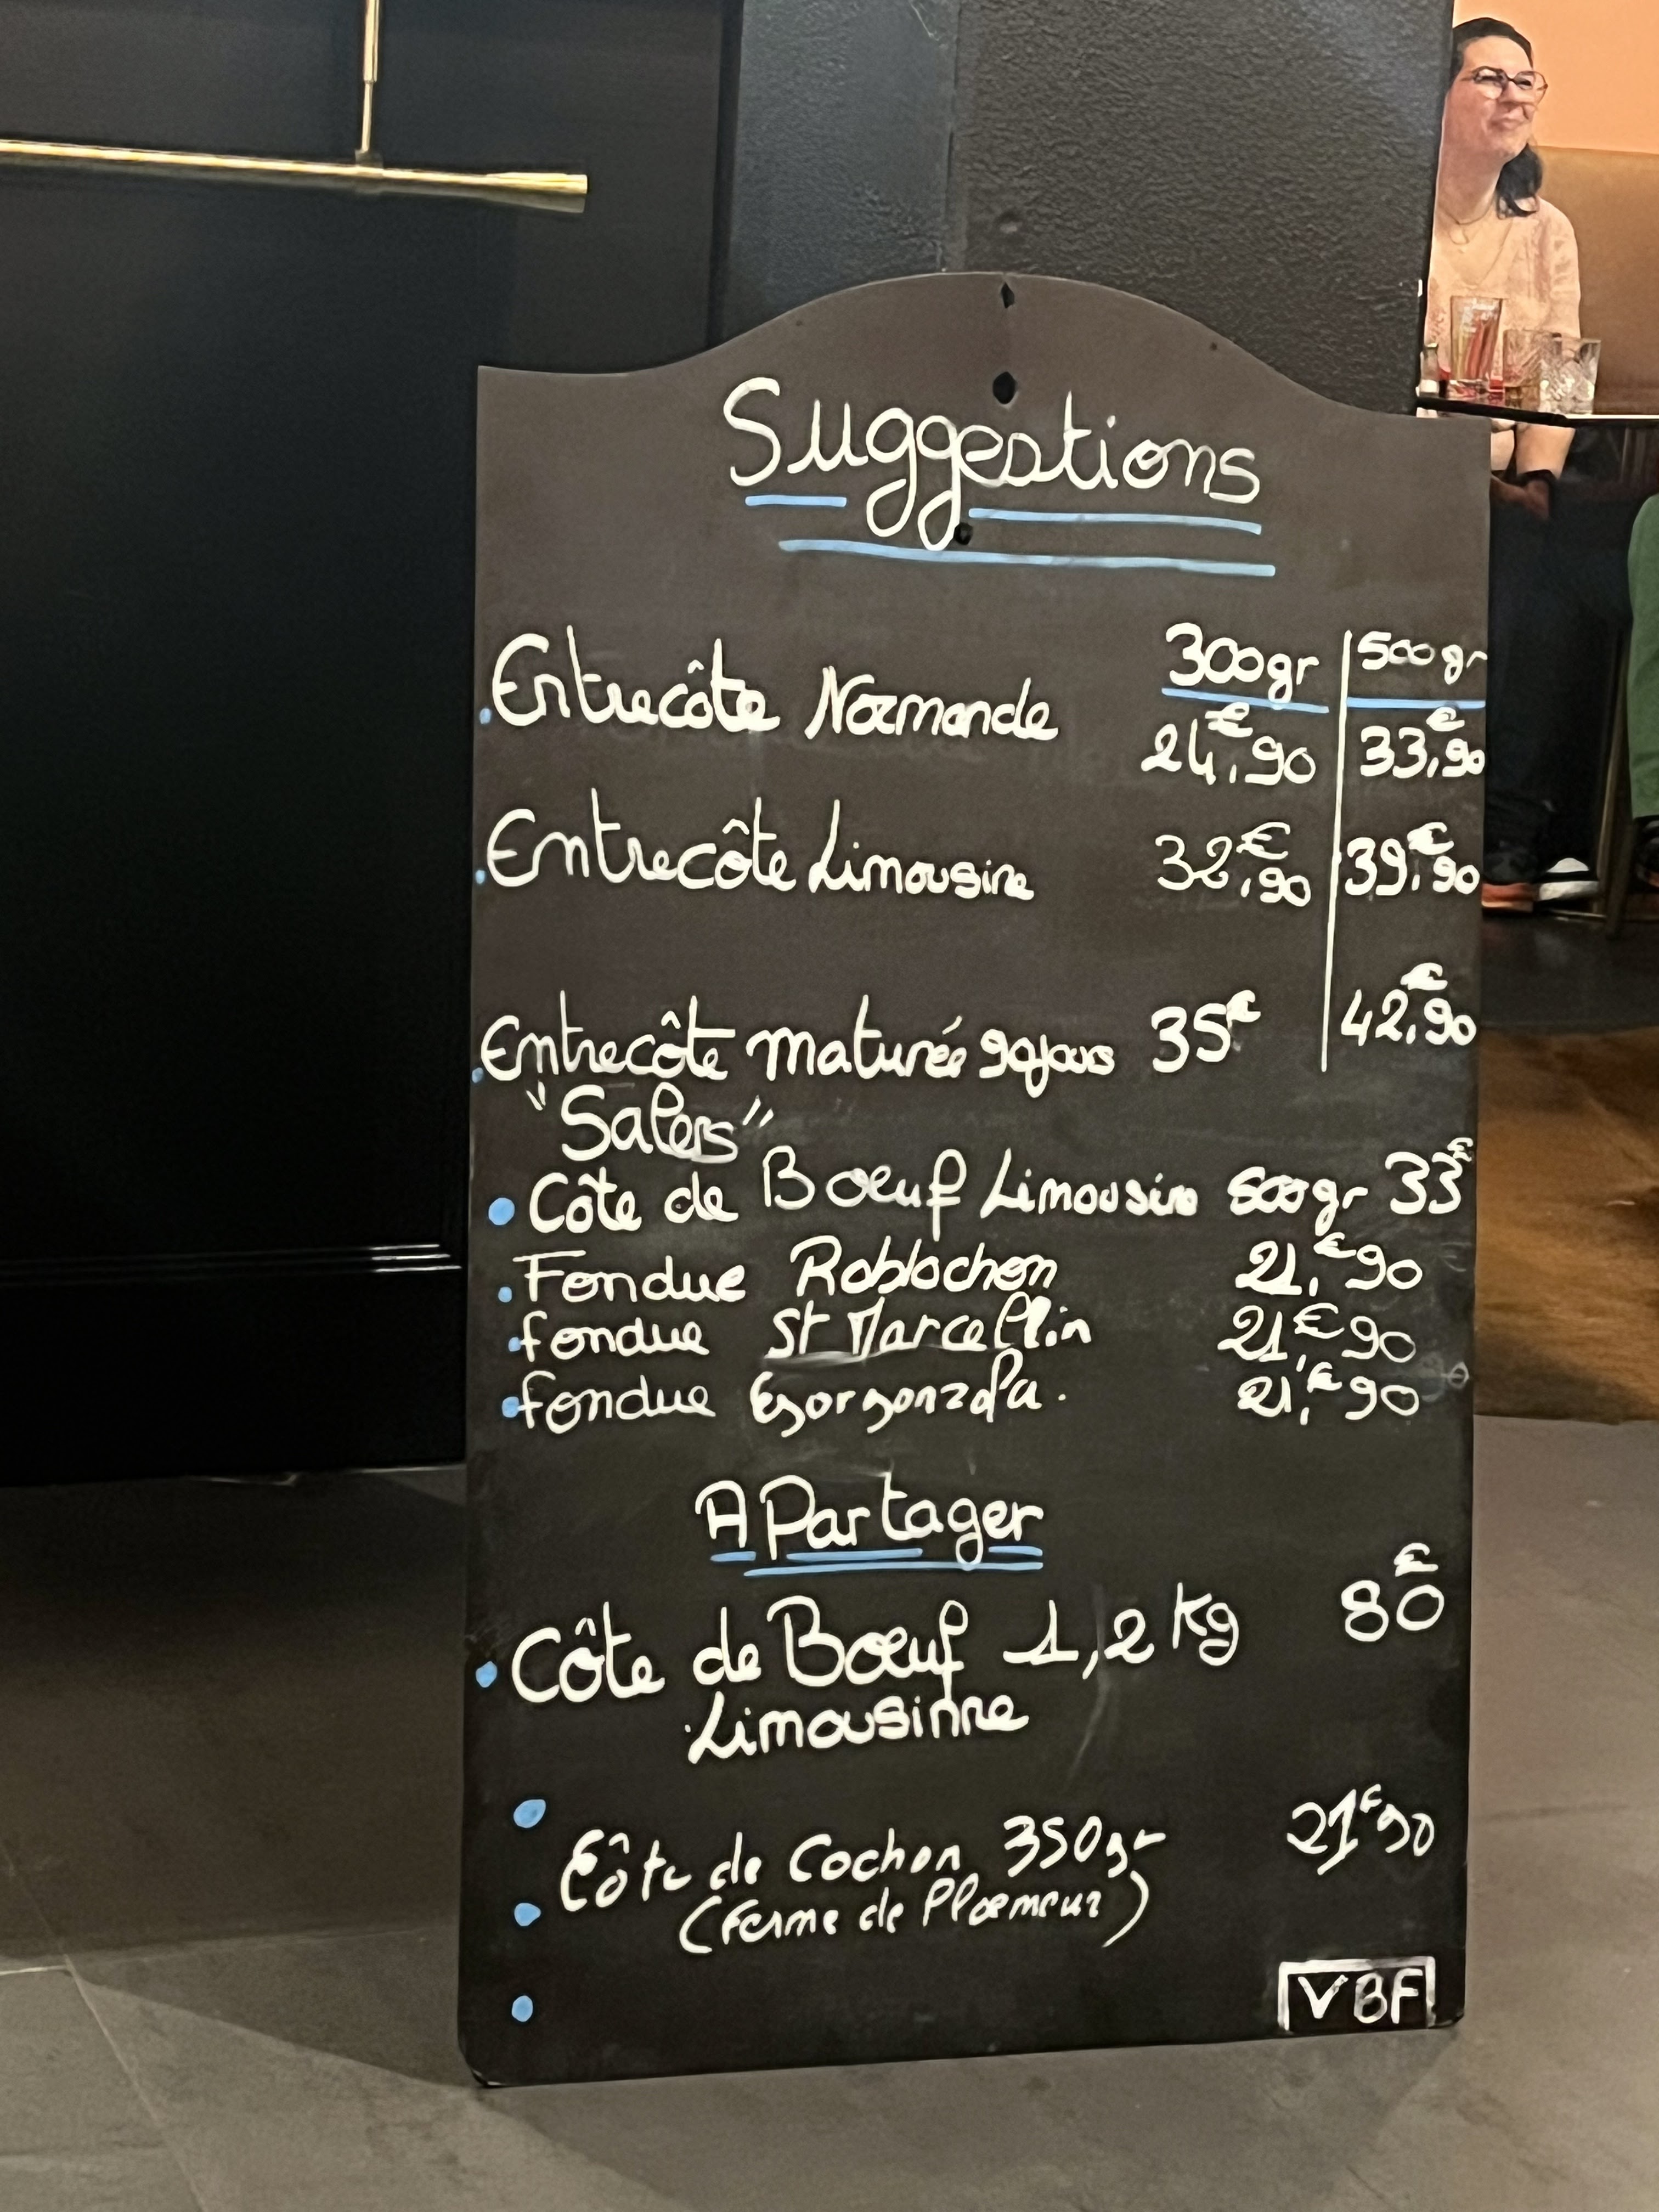 Suggestions
300gr 500gr
Entrecôte Normande 24,€90 33,€90
Entrecôte Limousine 32,€90 39,€90
Entrecôte maturée 90jours 35€ 42,€90
"Salers"
Côte de Boeuf Limousin 500gr 33€
Fondue Roblochon 21,€90
fondue St Marcellin 21,€90
fondue Gorgonzola. 21,€90
A Partager
Côte de Bœuf 1,2 Kg 80€
Limousinne
Côte de Cochon 350gr 21€90
(Ferme de Ploemeur)
VBF